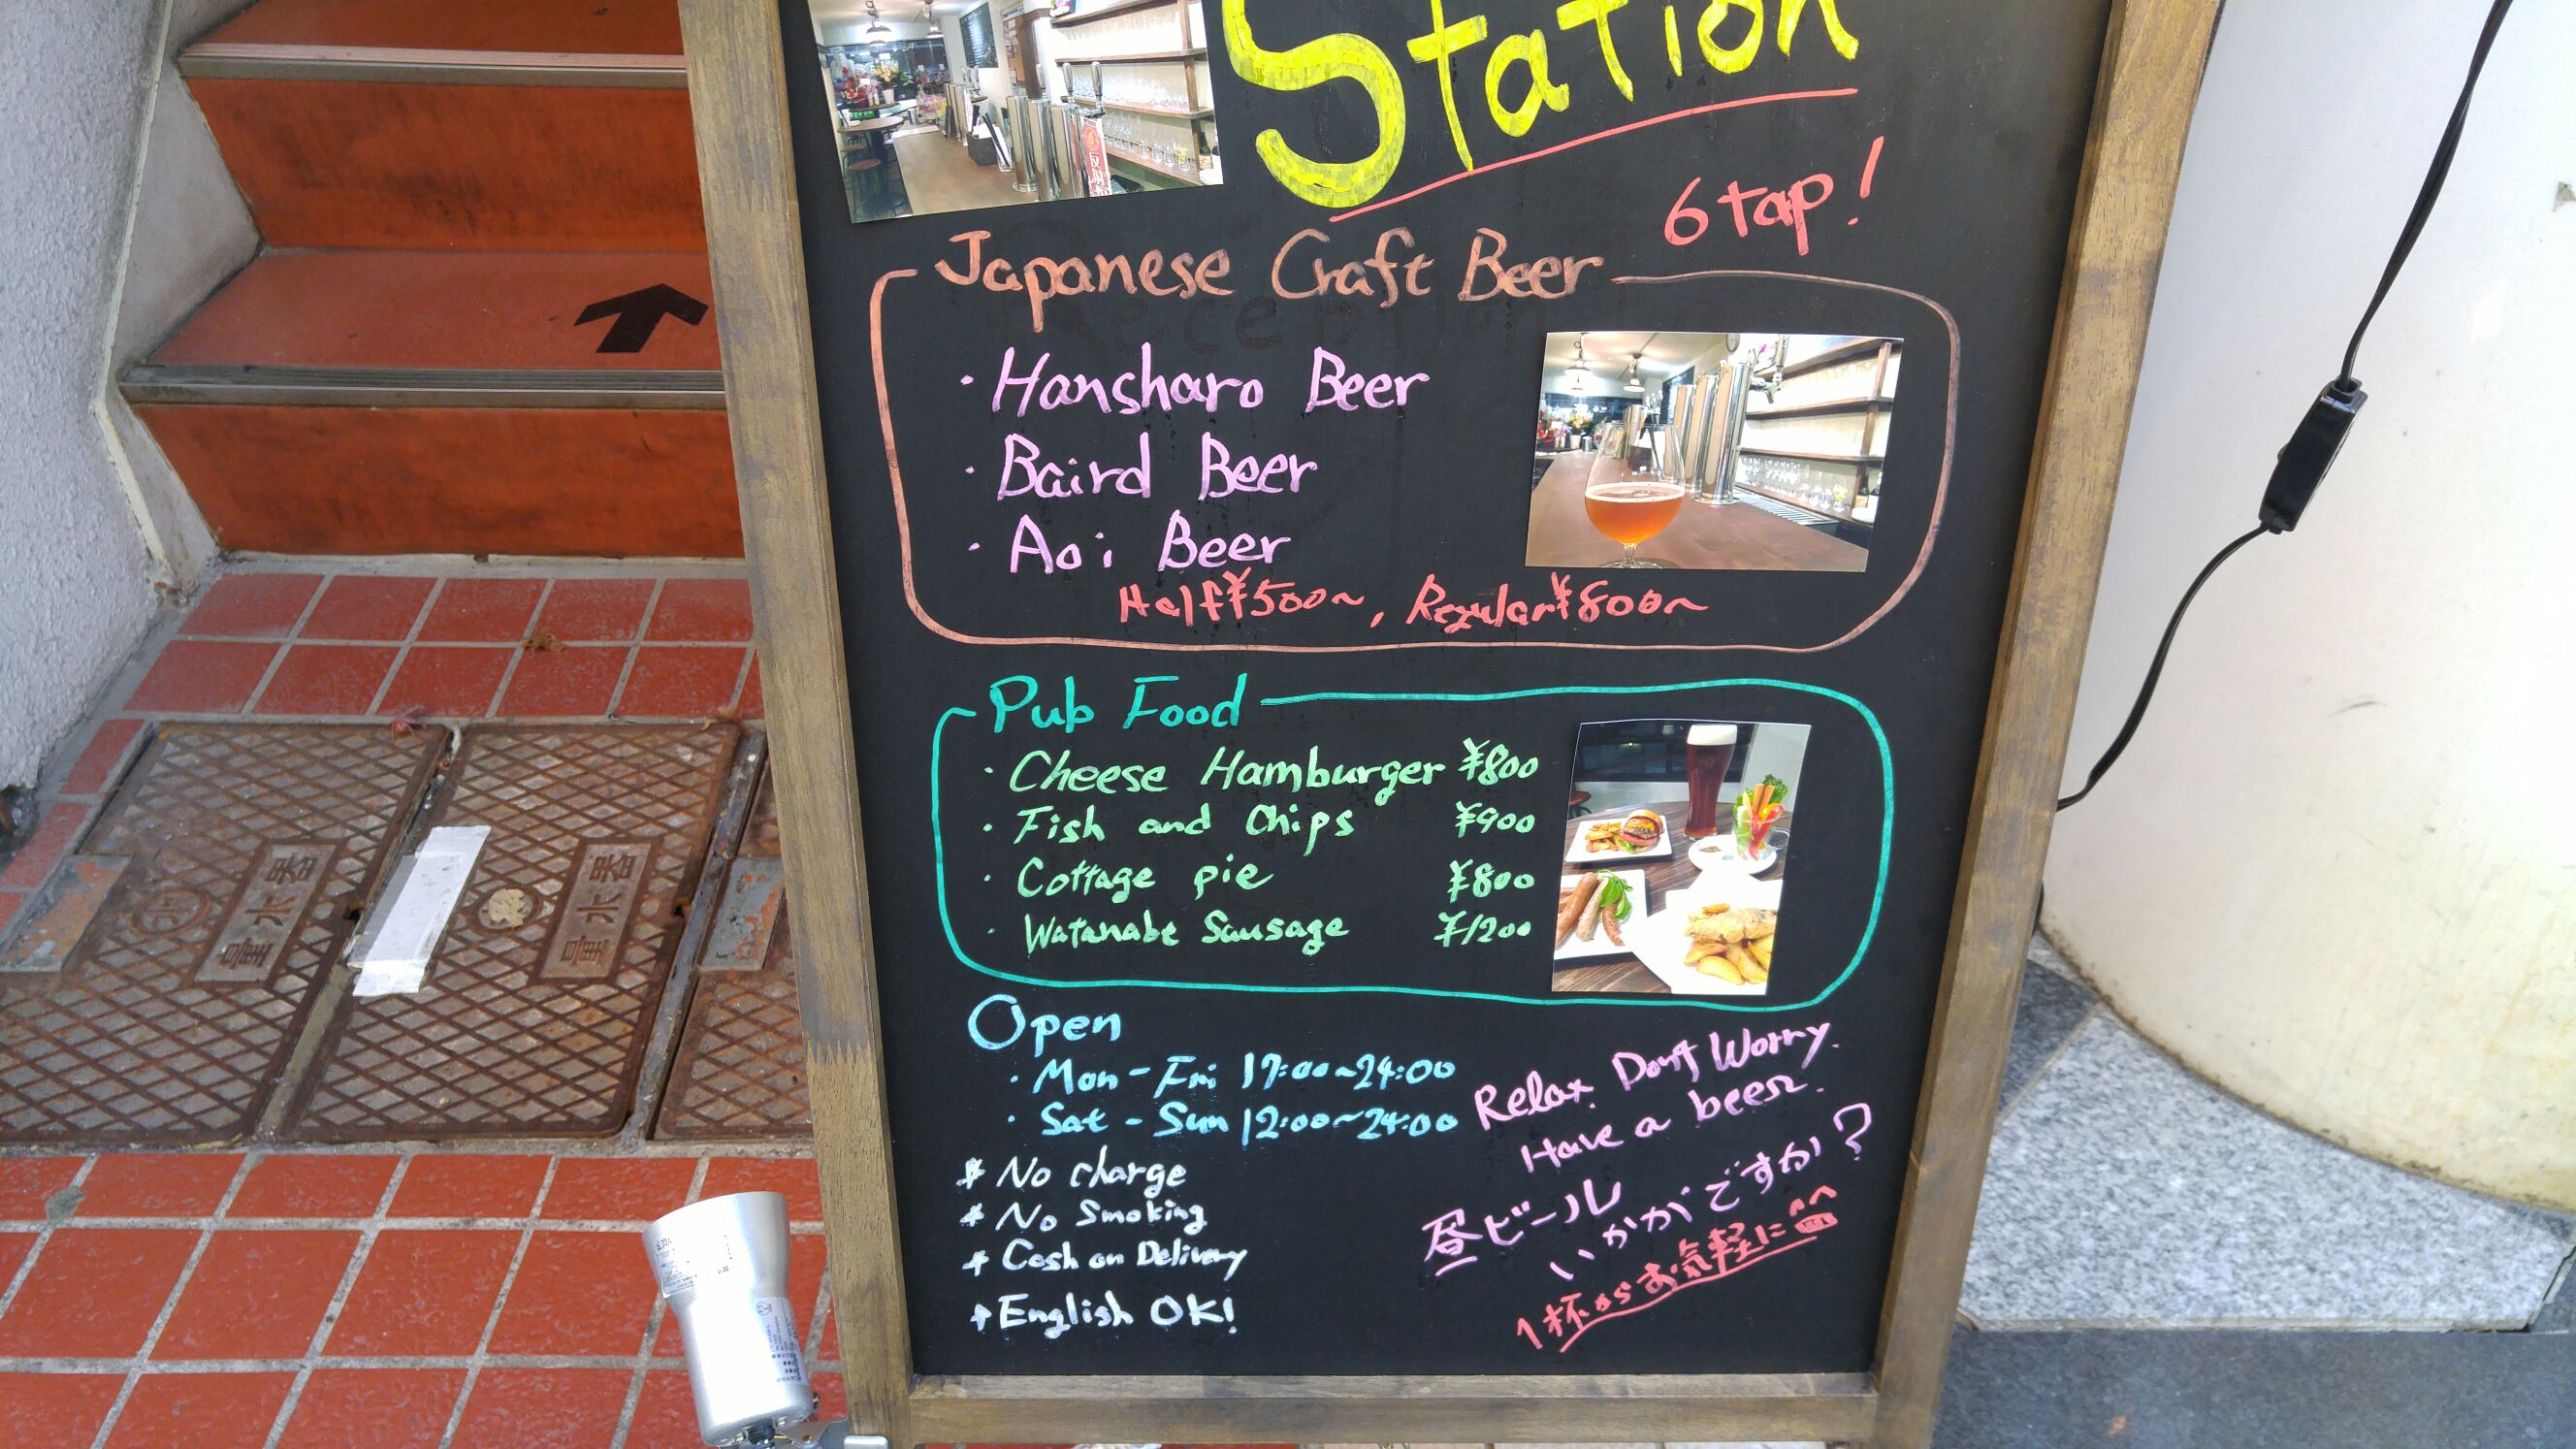 Station
6 tap!
Japanese Craft Beer
・Hansharo Beer
・Baird Beer
・Aoi Beer
Half¥500~, Regular¥800~
Pub Food
・Cheese Hamburger ¥800
・Fish and Chips ¥900
・Cottage pie ¥800
・Watanabe Sausage ¥1200
Open
・Mon-Fri 17:00~24:00
・Sat-Sun 12:00~24:00
* No charge
* No Smoking
* Cash on Delivery
* English OK!
Relax. Don't Worry.
Have a beer.
昼ビール
いかがですか?
1杯からお気軽に
量水器
量水器